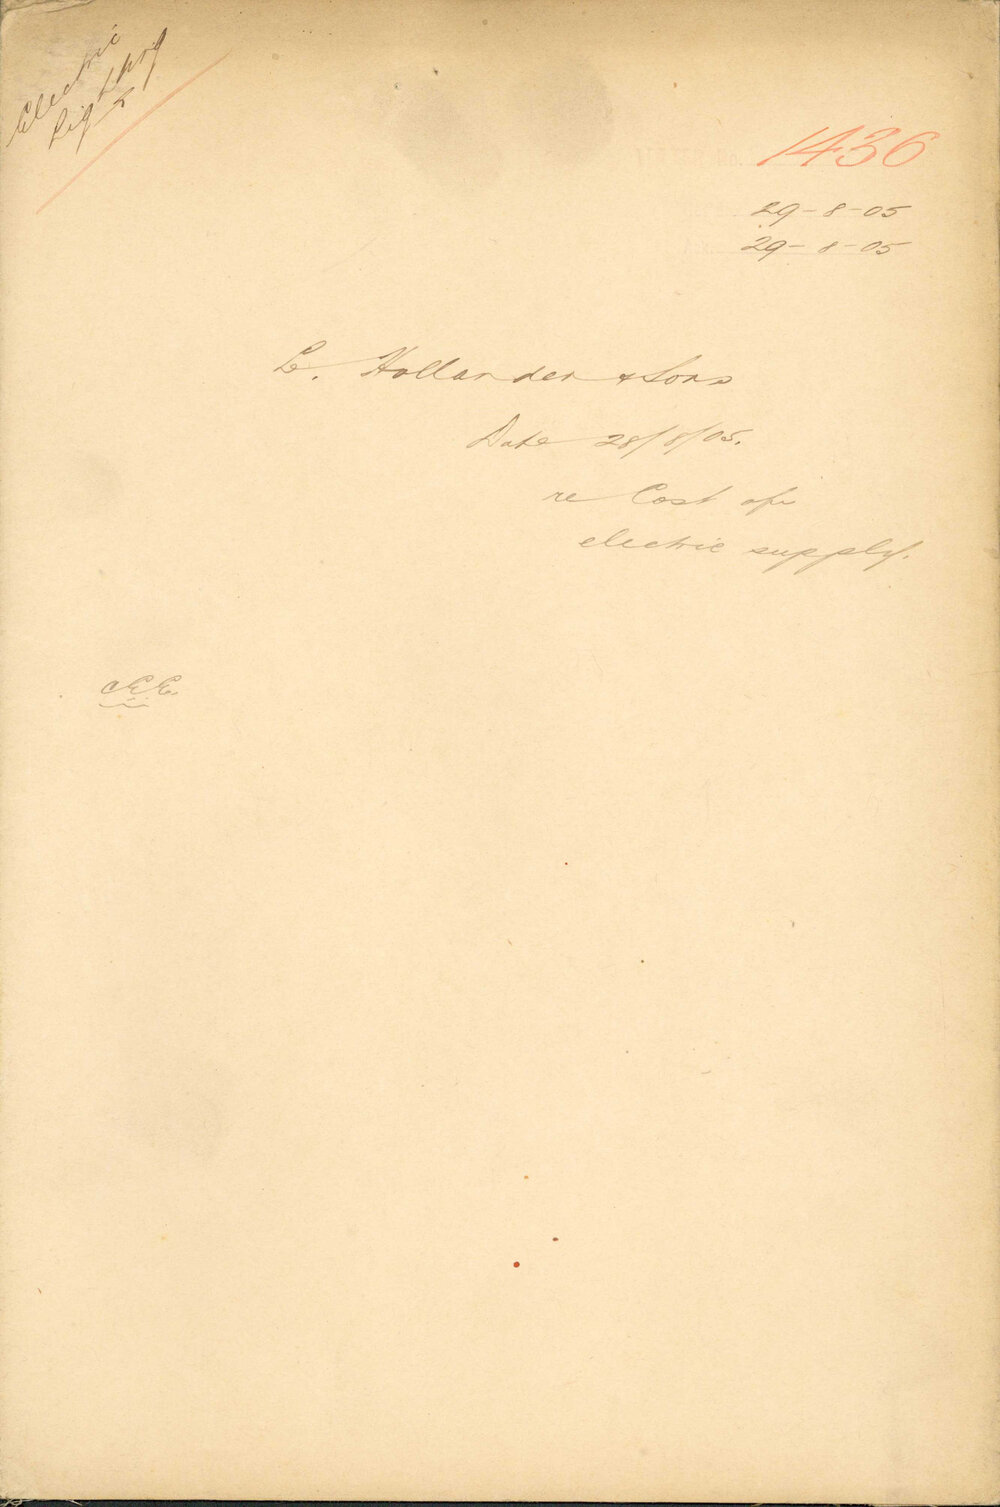 Electric
Lighting
1436
29-8-05
29-8-05
L. Hollander & Sons
Date 28/8/05.
re Cost of
electric supply.